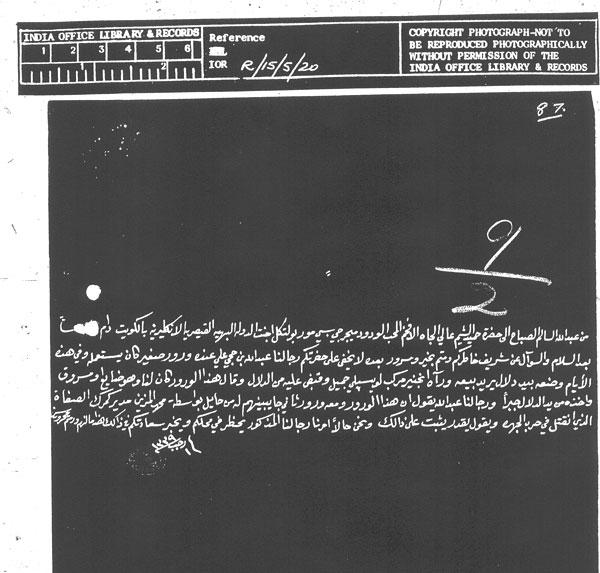 INDIA OFFICE LIBRARY & RECORDS
1 2 3 4 5 6
1 2
Reference
IOR R/15/5/20
COPYRIGHT PHOTOGRAPH-NOT TO
BE REPRODUCED PHOTOGRAPHICALLY
WITHOUT PERMISSION OF THE
INDIA OFFICE LIBRARY & RECORDS
87.
9/2
من عبدالله السالم الصباح الى حضرة حميد الشيم عالي الجاه الافخم المحب الودود ميجر جي سي مور بولتكل اجنت الدولة البهية القيصرية الانكليزية بالكويت دام
بعد السلام والسؤال عن شريف خاطركم دمتم بخير وسرور بعده لا يخفى على حضرتكم رجالنا عبدالله بن حجي علي عنده ورور صغير كان يستعمله وفي هذه
الأيام وضعه بيد دلال يريد بيعه ورآه مركب جميل وقبض عليه من الدلال وقال هذا الورور كان لنا وهو ضايع او مسروق
واخذه من يد الدلال جبراً ورجالنا عبدالله يقول ان هذا الورور ومعه ورور من حايل بواسطة محمد مدير كمرك الصفاة
الذي انقتل في حرب الجهره ويقول يقدر يثبت على ذالك ونحن حالاً رجالنا المذكور يحضر في محلكم ويخبر سعادتكم
رجب ١٣٣٩